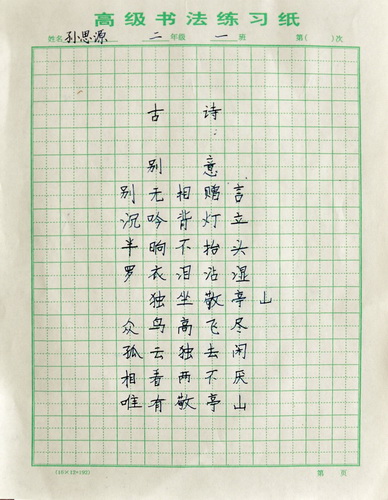 高级书法练习纸
姓名 孙思源 二 年级 一 班 第( )次
古 诗
别 意
别 无 相 赠 言
沉 吟 背 灯 立
半 晌 不 抬 头
罗 衣 泪 沾 湿
独 坐 敬 亭 山
众 鸟 高 飞 尽
孤 云 独 去 闲
相 看 两 不 厌
唯 有 敬 亭 山
(16×12=192) 第 页